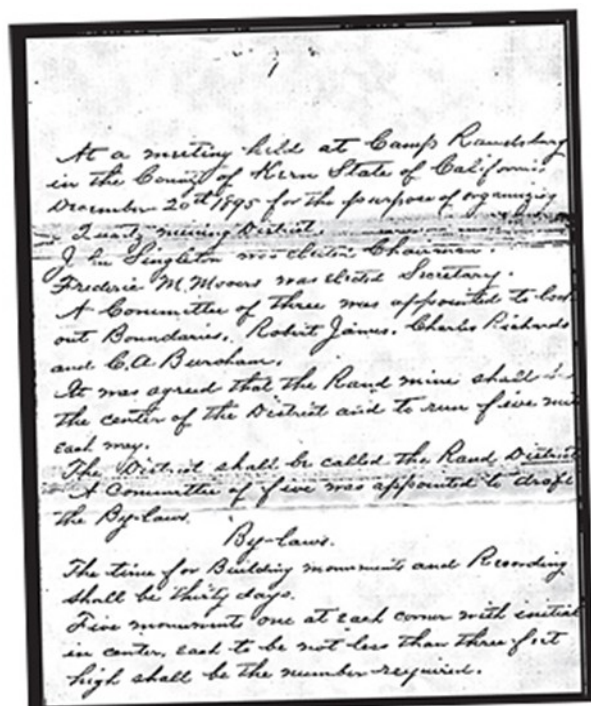 1
At a meeting held at Camp Randsburg
in the County of Kern State of California
December 20th 1895 for the purpose of organizing
mining District.
J Singleton was elected Chairman.
Frederic M. Mooers was elected Secretary.
A Committee of three was appointed to look
out Boundaries. Robert James. Charles Richards
and C.A. Burcham.
It was agreed that the Rand mine shall
the center of the District and to run five
each way.
The District shall be called the Rand District
A Committee of five was appointed to draft
the By-laws.
By-laws.
The time for Building monuments and Recording
shall be thirty days.
Five monuments one at each corner with initial
in center, each to be not less than three feet
high shall be the number required.